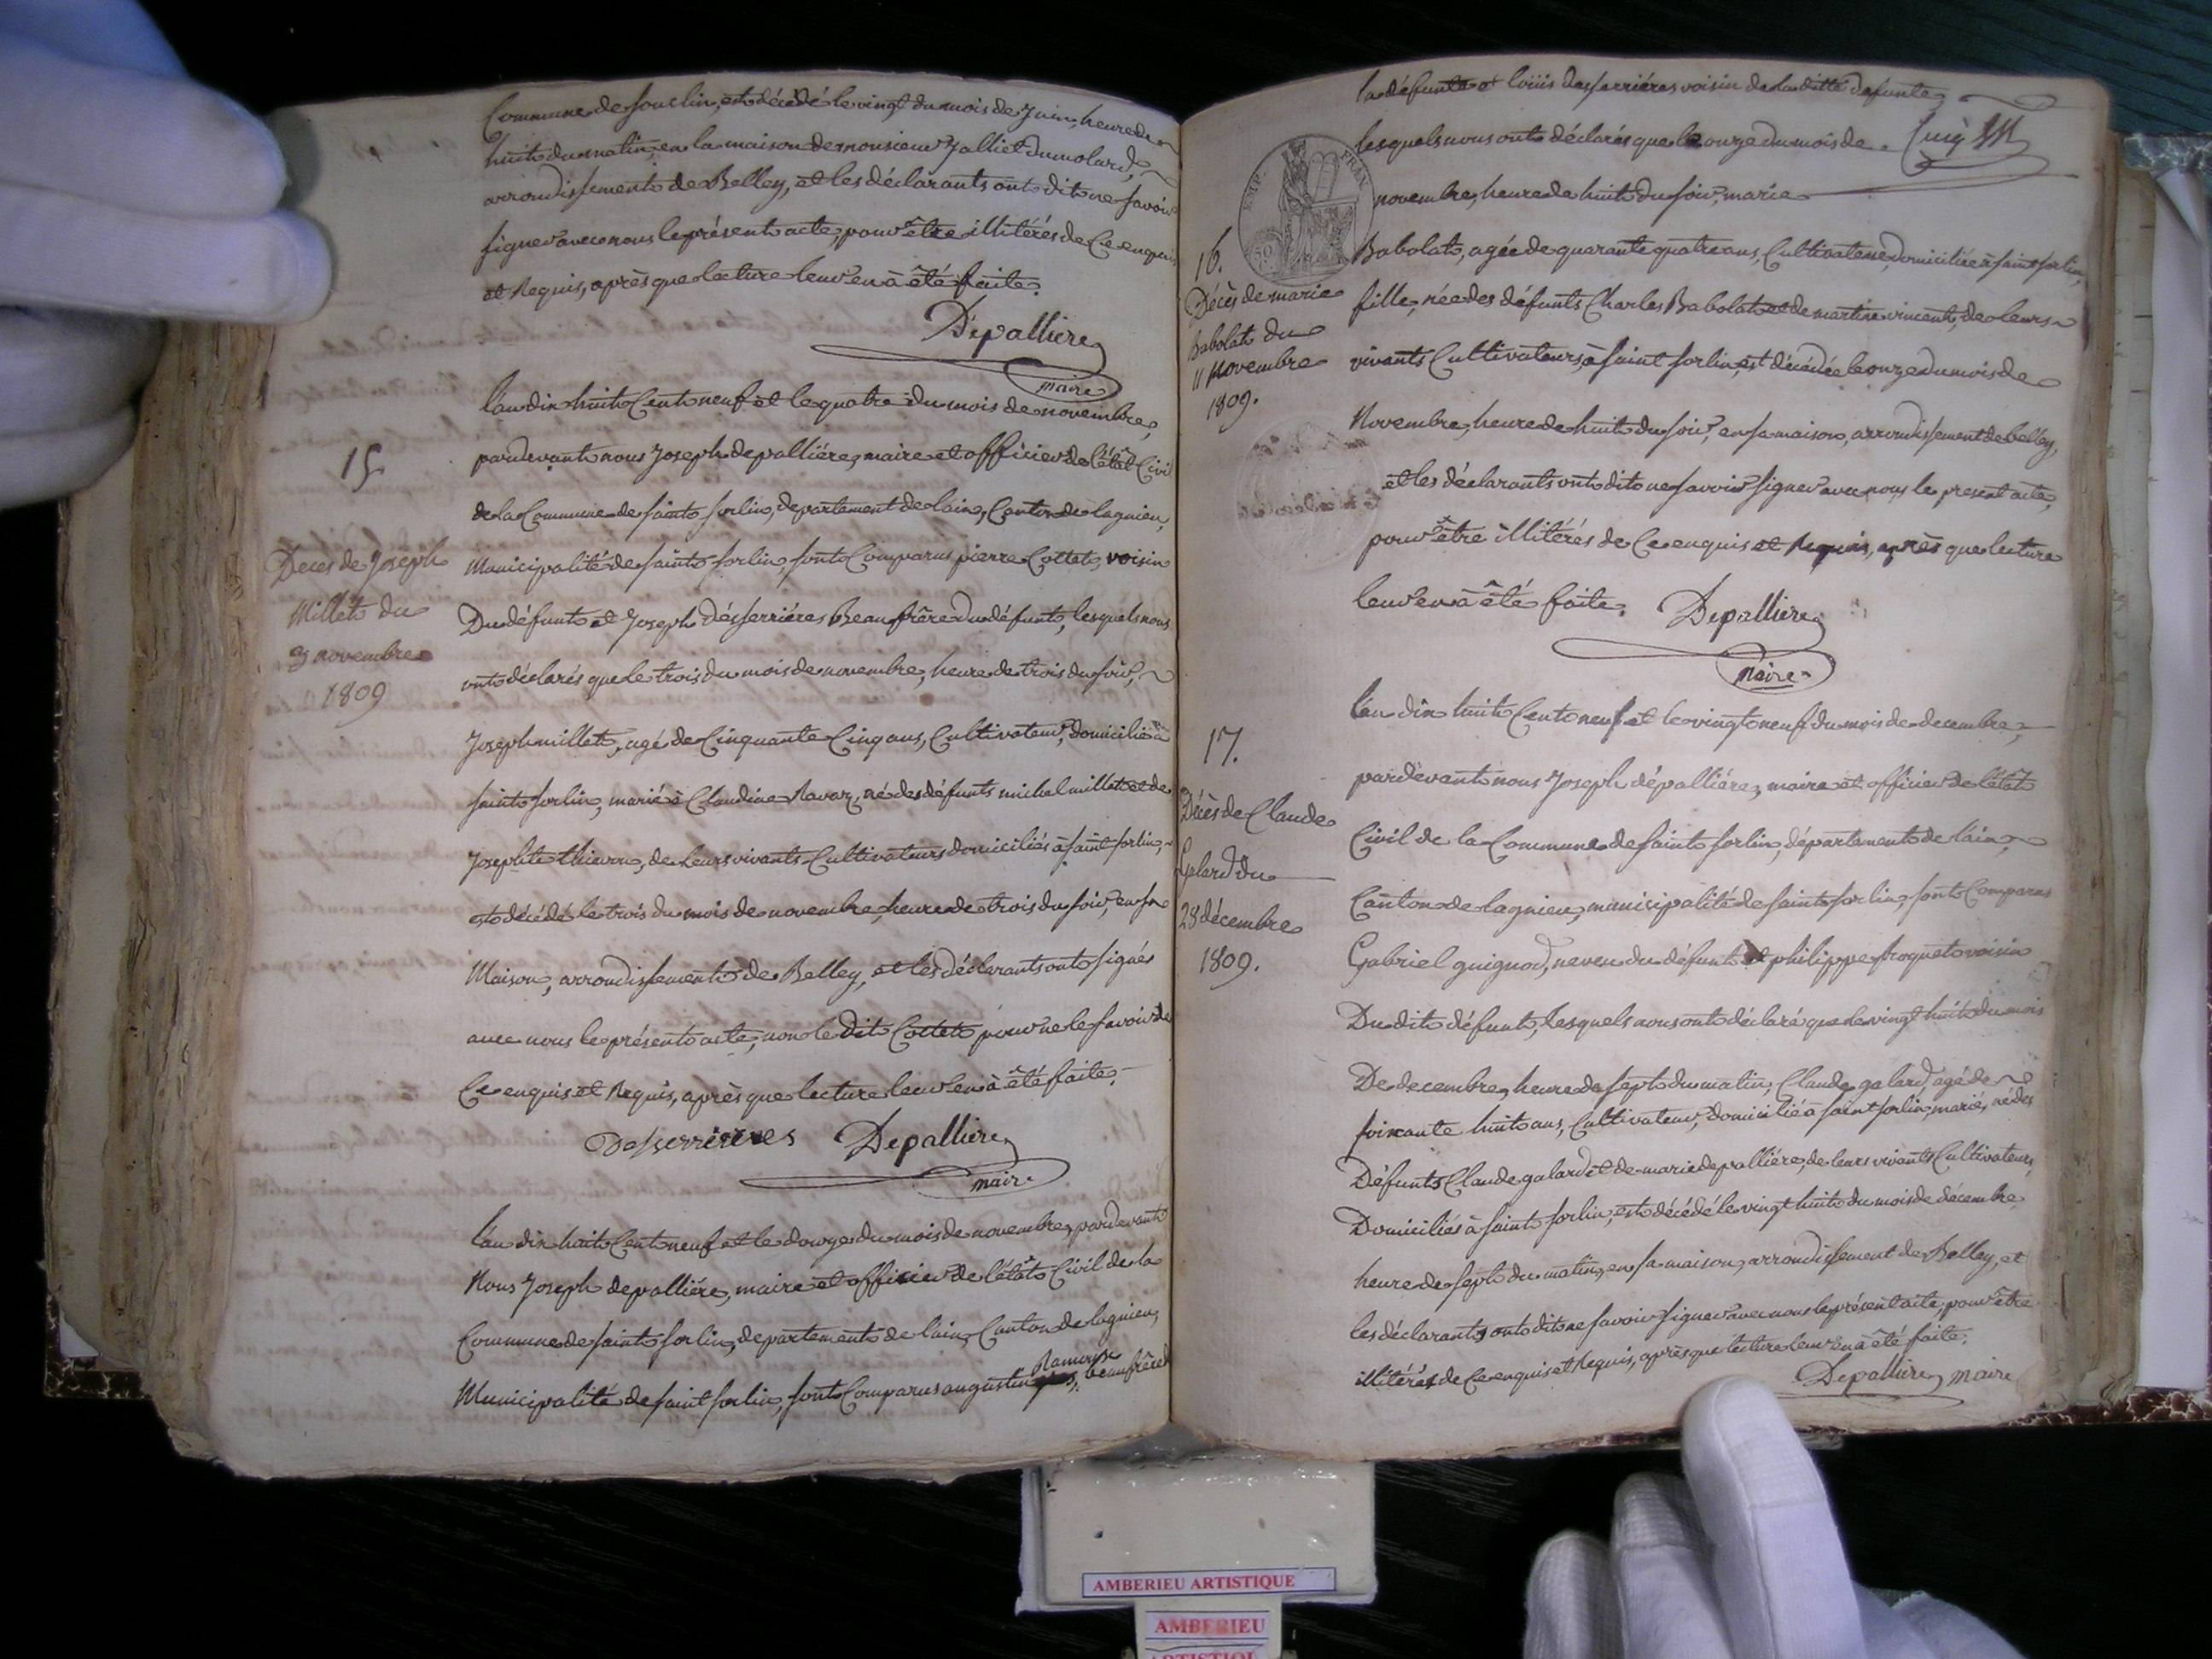 Commune de souclin, est décédé le vingt du mois de Juin, heure de
huit du matin, en la maison de monsieur Jalliet du molard,
arrondissement de Belley, et les déclarants ont dit ne savoir
signer avec nous le présent acte, pour être illitérés de Ce enquis
et Requis, après que lecture leur en à été faite.
Depalliere
maire
15
Deces de Joseph
Millet du
3 novembre
1809
l'an dix huit Cent neuf et le quatre du mois de novembre,
pardevant nous Joseph depalliére, maire et officier de l'état Civil
de la Commune de saint sorlin, departement de lain, Canton de lagnieu,
Municipalité de saint sorlin, sont Comparus pierre Cottet, voisin
Du défunt et Joseph désserriéres Beaufrère du défunt, lesquels nous
ont déclarés que le trois du mois de novembre, heure de trois du soir,
Joseph millet, agé de Cinquante Cinq ans, Cultivateur, domicilié à
saint sorlin, marié à Claudine Ravaz, né des défunts michel millet et de
Josephte thievon, de leurs vivants Cultivateurs domiciliés à saint sorlin,
est décédé le trois du mois de novembre, heure de trois du soir, en sa
Maison, arrondissement de Belley, et les déclarants ont signés
avec nous le présent acte, non le dit Cottet pour ne le savoir de
Ce enquis et Requis, après que lecture leur en à été faite.
Desserrieres Depalliere
maire
l'an dix huit Cent neuf et le douze du mois de novembre, pardevant
Nous Joseph depalliére, maire et officier de l'état Civil de la
Commune de saint sorlin, departement de lain, Canton de lagnieu,
Ramousse
Municipalité de saint sorlin, sont Comparus augustin beaufrère de
la défunte et loüis desserriéres voisin de la ditte defunte
lesquels nous ont déclarés que le onze du mois de
novembre, heure de huit du soir, marie
EMP. FRAN.
16.
Décès de marie
Babolat du
11 Novembre
1809.
Babolat, agée de quarante quatre ans, Cultivateuse, domiciliée à saint sorlin,
fille, née des défunts Charles Babolat et de martine vincent, de leurs
vivants Cultivateurs, à saint sorlin, est décédée le onze du mois de
Novembre, heure de huit du soir, en sa maison, arrondissement de belley,
et les déclarants ont dit ne savoir signer avec nous le present acte,
pour être illitérés de Ce enquis et Requis, après que lecture
leur en à été faite. Depalliere
maire
17.
Décès de Claude
Galard du
28 décembre
1809.
l'an dix huit Cent neuf et le vingt neuf du mois de decembre,
pardevant nous Joseph dépalliére, maire et officier de l'état
Civil de la Commune de saint sorlin, département de l'ain,
Canton de lagnieu, municipalité de saint sorlin, sont Comparus
Gabriel guignod, neveu du défunt et philippe froquet voisin
Du dit défunt, lesquels nous ont déclaré que le vingt huit du mois
De decembre, heure de sept du matin, Claude galard, agé de
soixante huit ans, Cultivateur, domicilié à saint sorlin, marié, né des
Défunts Claude galard et de marie depalliére, de leurs vivants Cultivateurs,
Domiciliés à saint sorlin, est décédé le vingt huit du mois de décembre
heure de sept du matin, en sa maison, arrondissement de Belley, et
les déclarants ont dit ne savoir signer avec nous le présent acte, pour être
illitérés de Ce enquis et Requis, après que lecture leur en à été faite.
Depalliere maire
AMBERIEU ARTISTIQUE
AMBERIEU
ARTISTIQUE